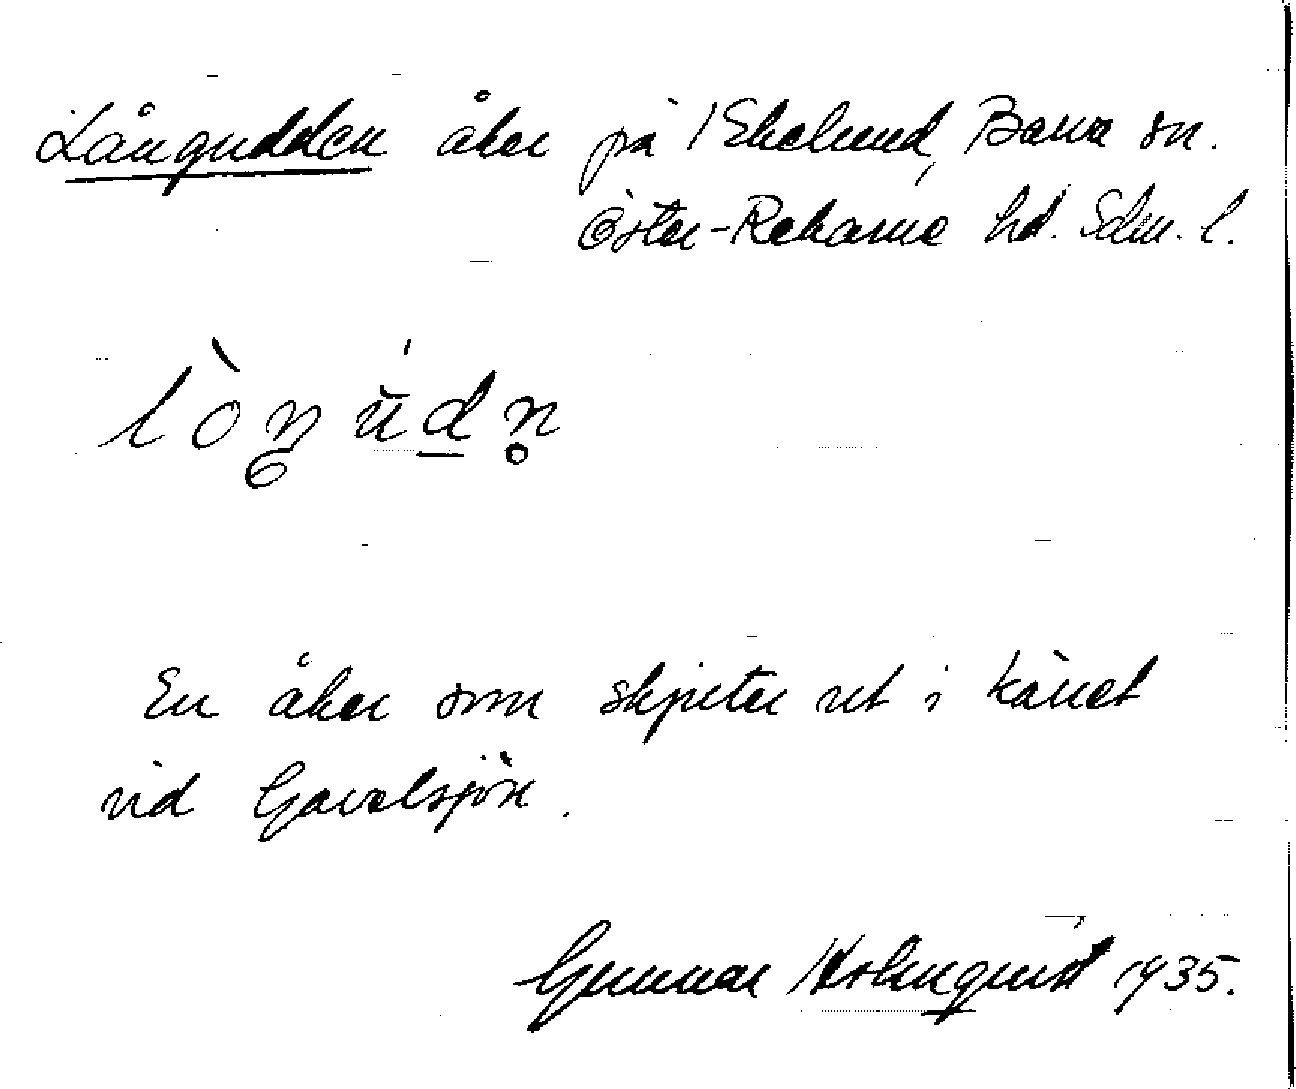 Långudden åker på Ekelund, Barva sn.
Öster-Rekarne hd. Södm. l.
lòŋùdn̥
En åker som skjuter ut i kärret
vid Gavelsjön.
Gunnar Holmquist 1935.